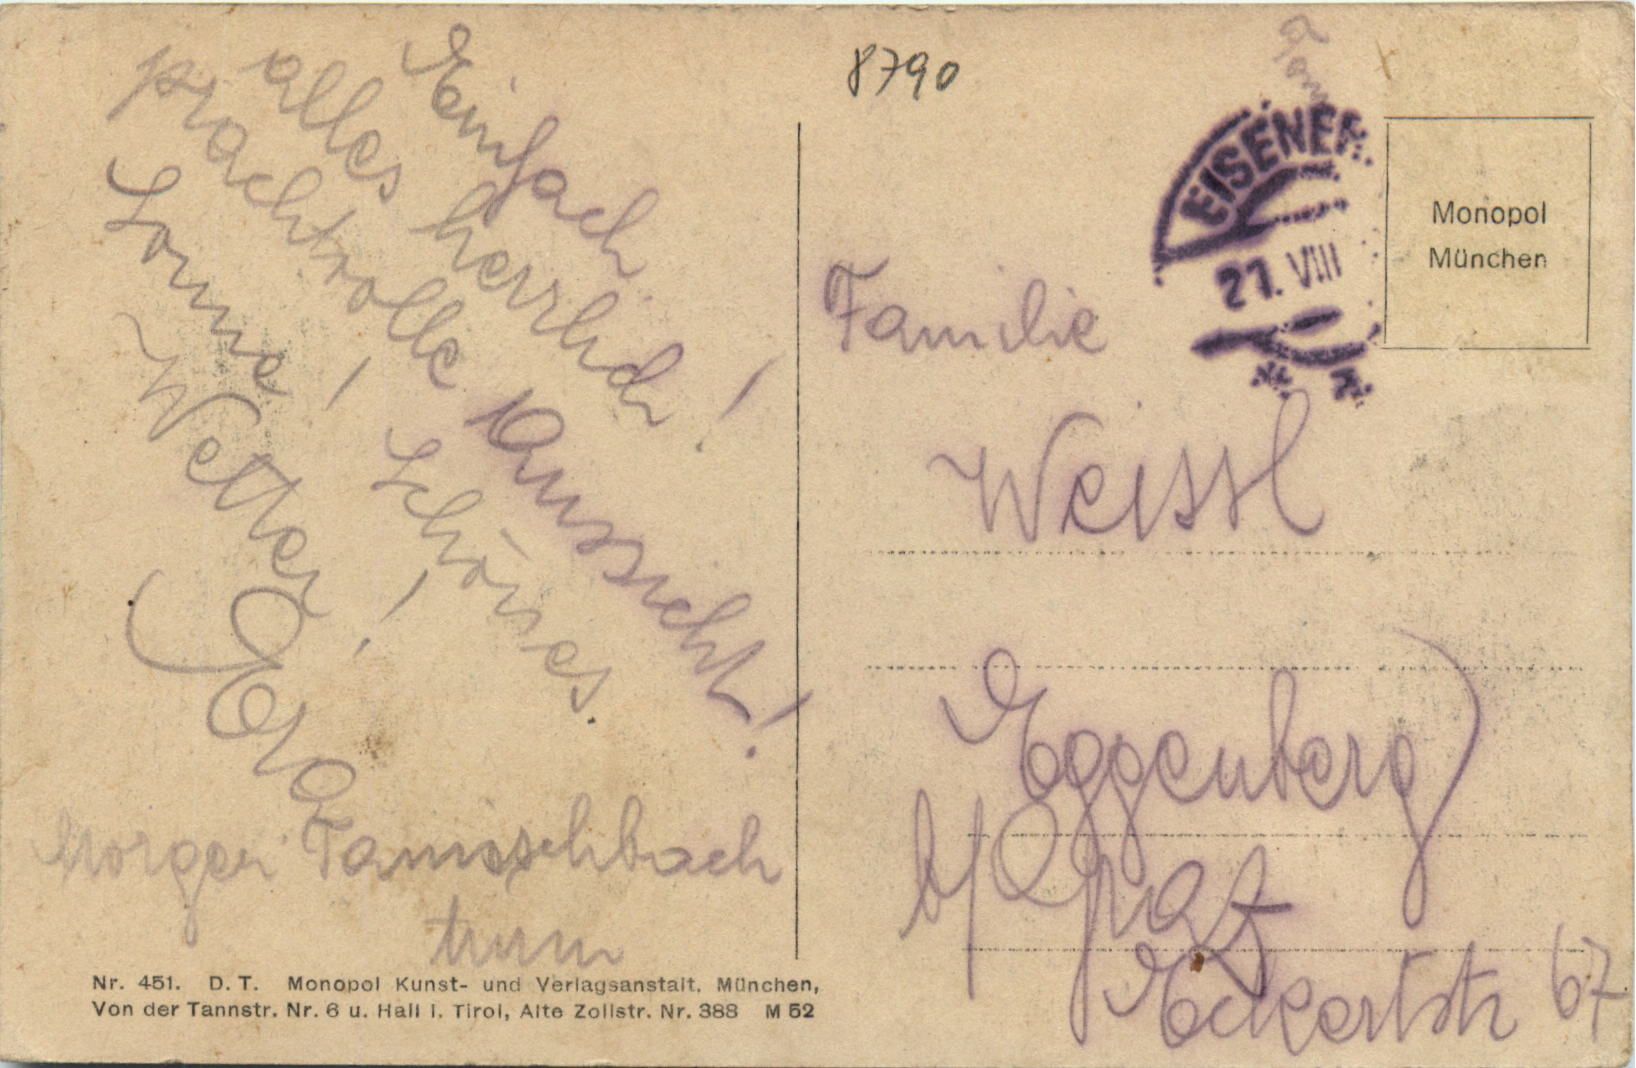 8790
Einfach
alles herrlich!
prachtvolle Aussicht!
Sonne! Schönes
Wetter!
Morgen Tamischbach
turm
Nr. 451. D. T. Monopol Kunst- und Verlagsanstalt. München,
Von der Tannstr. Nr. 6 u. Hall i. Tirol, Alte Zollstr. Nr. 388 M 52
EISENER
21. VIII
Monopol
München
Familie
Weissl
Eggenberg
b/Graz
Eckertstr 67